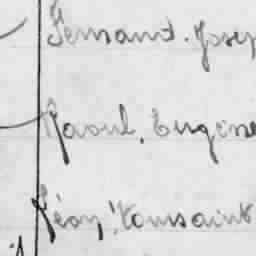 Fernand. Josep
Raoul, Eugène
Léon, Toussaint